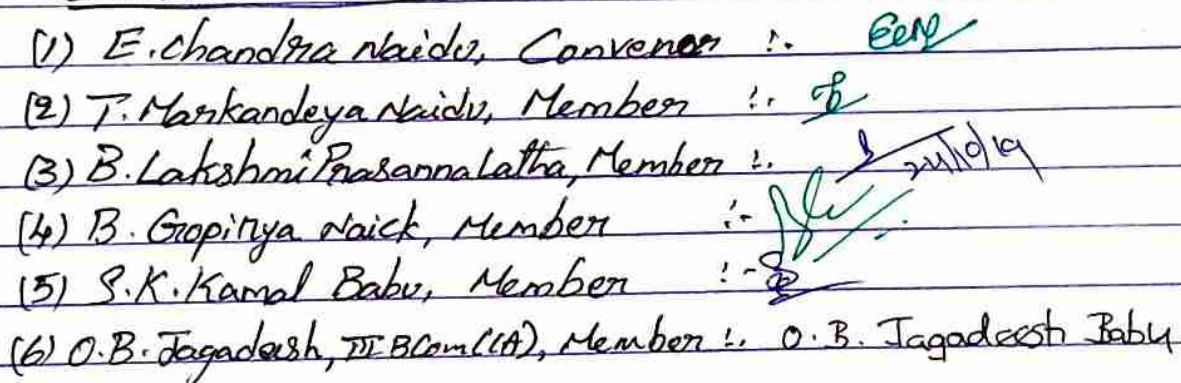 (1) E. Chandra Naidu, Convenor :-
(2) T. Markandeya Naidu, Member :-
(3) B. Lakshmi Prasanna Latha, Member :- 24/10/19
(4) B. Gopinya Naick, Member :-
(5) S.K. Kamal Babu, Member :-
(6) O.B. Jagadeesh, III BCom(CA), Member :- O.B. Jagadeesh Babu